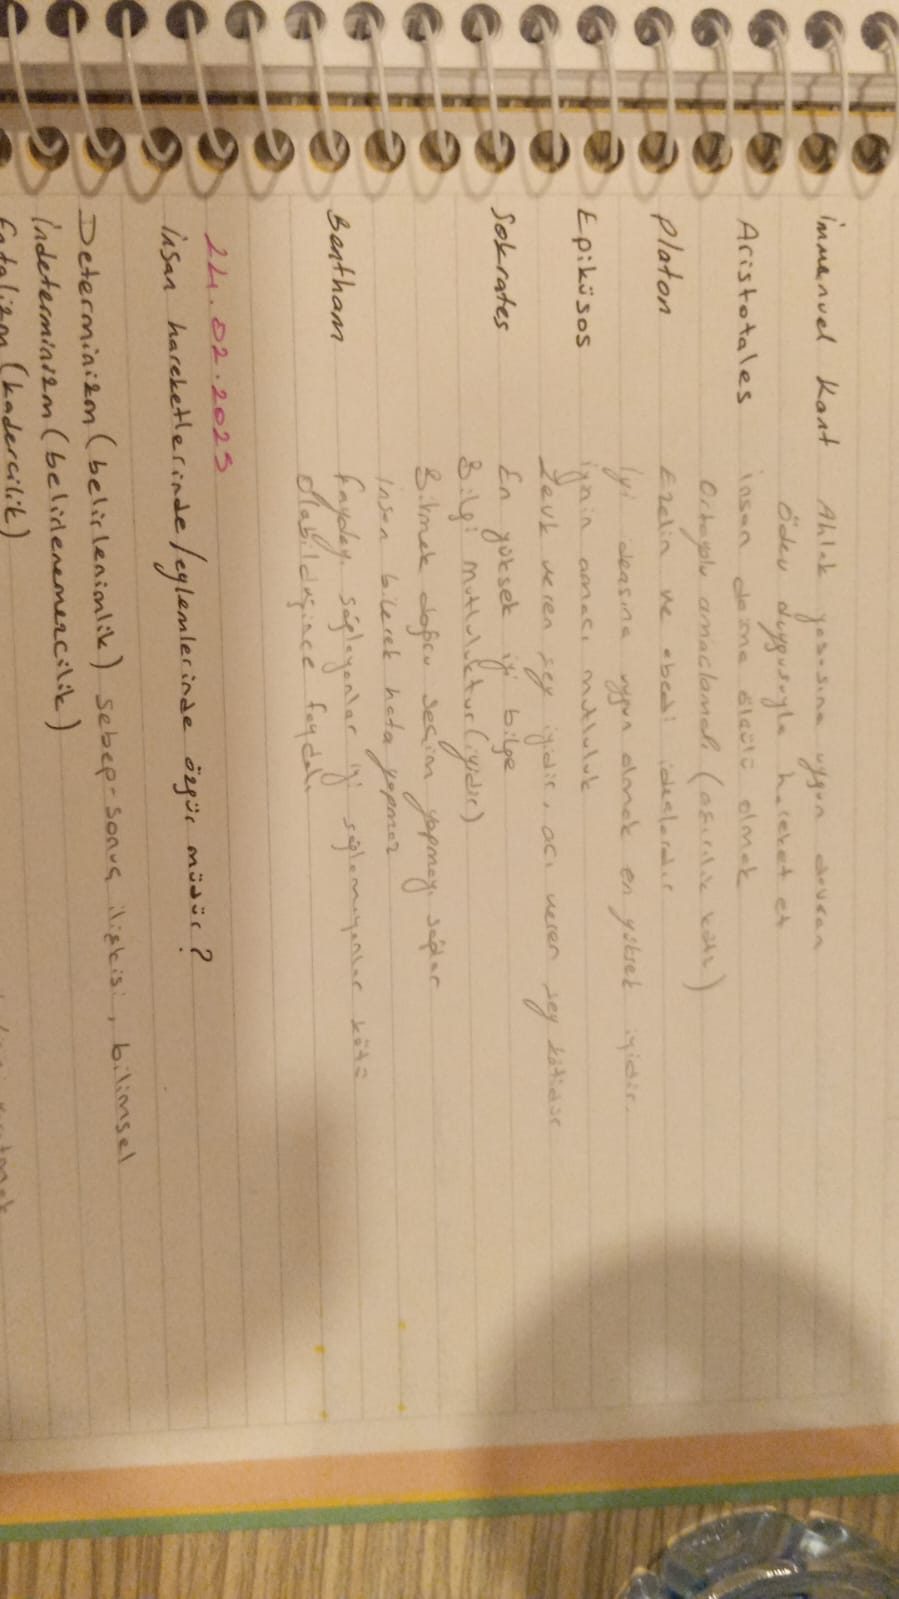 immanuel Kant Ahlak yasasına uygun davran
Ödev duygusuyla hareket et
Aristotales insan daima ölçülü olmak
Ortayolu amaçlamalı (aşırılık kötü)
Platon Ezelin ve ebedi idealardır
iyi ideasına uygun olmak en yüksek iyidir.
Epiküsos iyinin amacı mutluluk
Zevk veren şey iyidir, acı veren şey kötüdür
Sokrates En yüksek iyi bilge
Bilgi mutluluktur (iyidir)
Bilmek doğru seçim yapmayı sağlar
insan bilerek hata yapmaz
Bentham Faydayı sağlayanlar iyi sağlamayanlar kötü
Olabildiğince faydalı
24.02.2025
insan hareketlerinde/eylemlerinde özgür müdür?
Determinizm (belirlenimlik) sebep-sonuç ilişkisi, bilimsel
indeterminizm (belirlenemezcilik)
Fatalizm (kadercilik)